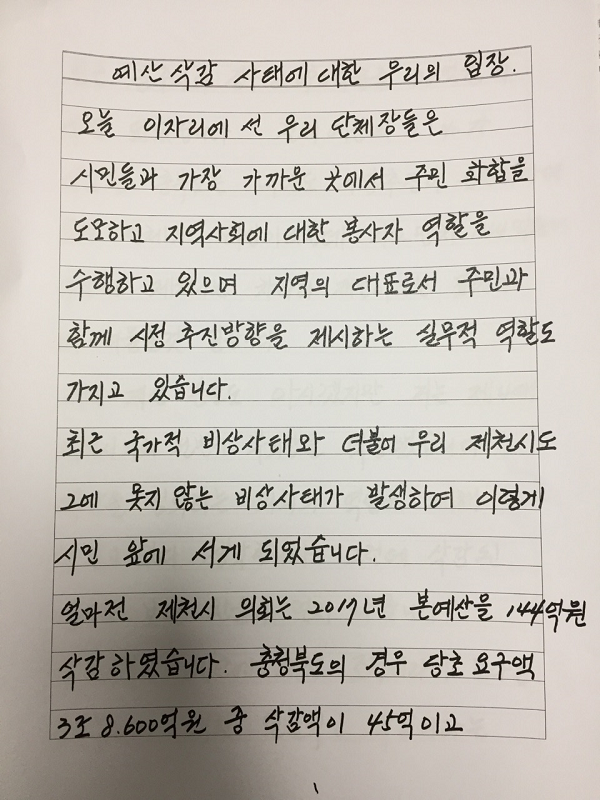 예산 삭감 사태에 대한 우리의 입장.
오늘 이자리에 선 우리 단체장들은
시민들과 가장 가까운 곳에서 주민 화합을
도모하고 지역사회에 대한 봉사자 역할을
수행하고 있으며 지역의 대표로서 주민과
함께 시정 추진방향을 제시하는 실무적 역할도
가지고 있습니다.
최근 국가적 비상사태와 더불어 우리 제천시도
그에 못지 않는 비상사태가 발생하여 이렇게
시민 앞에 서게 되었습니다.
얼마전 제천시 의회는 2017년 본예산을 144억원
삭감하였습니다. 충청북도의 경우 당초 요구액
3조 8.600억원 중 삭감액이 45억이고
1